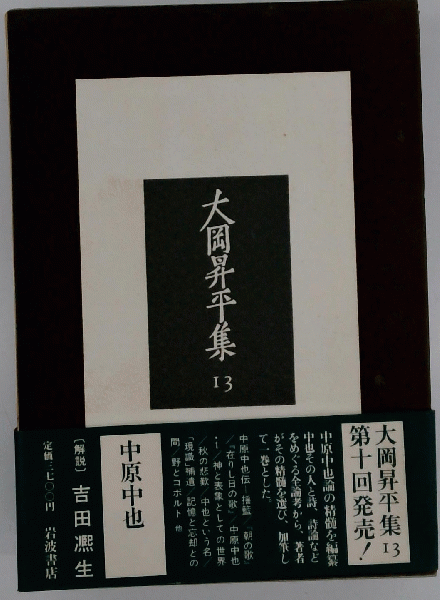 大岡昇平集
13
大岡昇平集13
第十回発売!
中原中也論の精髄を編纂
中也その人と詩、詩論など
をめぐる全論考から、著者
がその精髄を選び、加筆し
て一巻とした。
中原中也伝―揺籃/朝の歌
/「在りし日の歌」/中原中也
・1/神と表象としての世界
/秋の悲歎/中也という名/
「現識」補遺/記憶と忘却との
間/野とコボルト 他
中原中也
〔解説〕吉田凞生
定価三七〇〇円 岩波書店